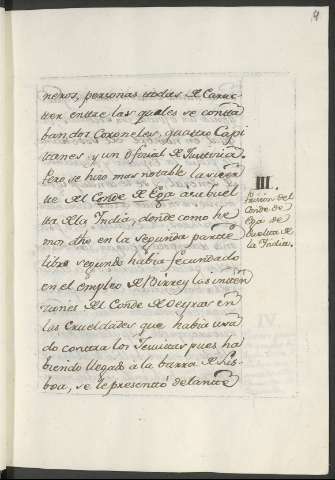 9
neros, personas todas de Carac
ter entre las quales se conta
ban dos Coroneles, quattro Capi
tanes, y un oficial de Justicia.
Pero se hizo mas notable la suer
te del Conde de Ega a su buel
ta de la India, donde como he
mos dho en la segunda parte
libro segundo había secundado
en el empleo de Virrey las inten
ciones del Conde de Oeyras en
las Crueldades que había usa
do contra los Jesuitas pues ha
biendo llegado a la barra de Lis
boa, se le presentó delante
III.
Prision del
Conde de
Ega de
buelta de
la India.